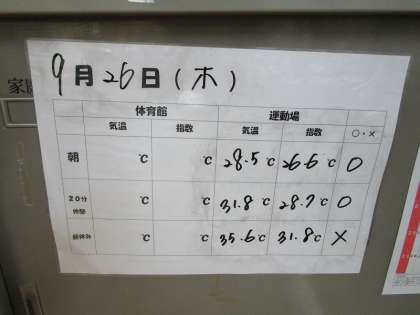 9月26日(木)
体育館 運動場
気温 指数 気温 指数 ○・×
朝 ℃ ℃ 28.5℃ 26.6℃ ○
20分休憩 ℃ ℃ 31.8℃ 28.7℃ ○
昼休み ℃ ℃ 35.6℃ 31.8℃ ×